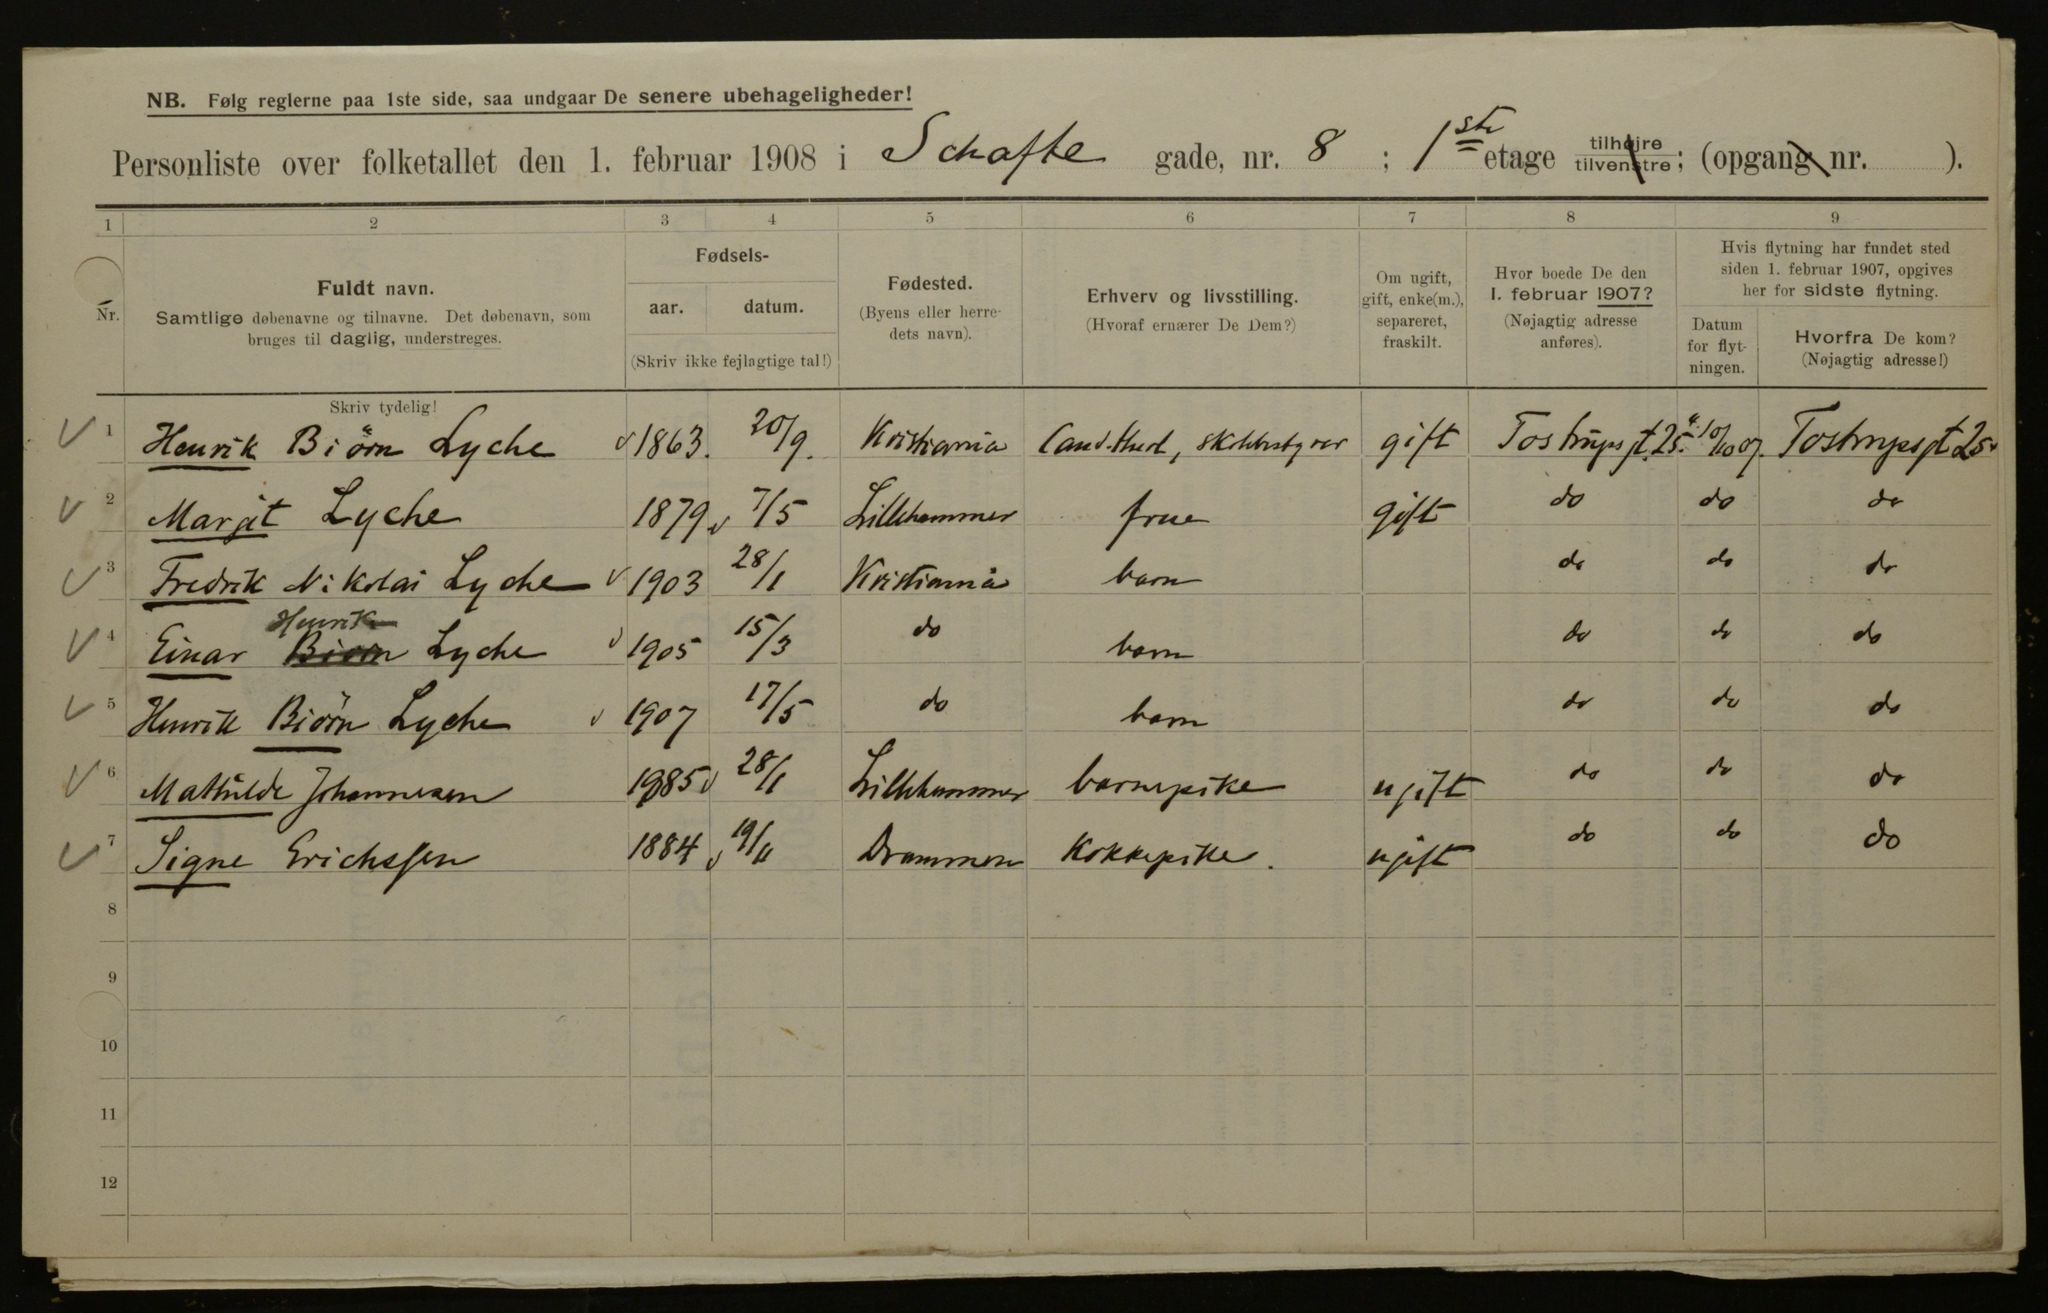 NB. Følg reglerne paa 1ste side, saa undgaar De senere ubehageligheder!
Personliste over folketallet den 1. februar 1908 i Schafte gade, nr. 8 ; 1ste etage tilhøjre tilvenstre ; (opgang nr. ).
1 2 3 4 5 6 7 8 9
Nr.
Fuldt navn.
Samtlige døbenavne og tilnavne. Det døbenavn, som
bruges til daglig, understreges.
Skriv tydelig!
Fødsels-
aar. datum.
(Skriv ikke fejlagtige tal!)
Fødested.
(Byens eller herre-
dets navn).
Erhverv og livsstilling.
(Hvoraf ernærer De Dem?)
Om ugift,
gift, enke(m.),
separeret,
fraskilt.
Hvor boede De den
1. februar 1907?
(Nøjagtig adresse
anføres).
Hvis flytning har fundet sted
siden 1. februar 1907, opgives
her for sidste flytning.
Datum
for flyt-
ningen.
Hvorfra De kom?
(Nøjagtig adresse!)
1 Henrik Biørn Lyche 1863. 20/9. Kristiania gift Tostrups gt. 25. 10/10 07. Tostrups gt 25
2 Margit Lyche 1879 7/5 Lillehammer frue gift do do do
3 Fredrik Nikolai Lyche 1903 28/1 Kristiania barn do do do
Henrik
4 Einar Biørn Lyche 1905 15/3 do barn do do do
5 Henrik Biörn Lyche 1907 17/5 do barn do do do
6 Mathilde Johannesen 1985 28/1 Lillehammer barnepike ugift do do do
7 Signe Erichssen 1884 19/11 Drammen Kokkepike. ugift do do do
8
9
10
11
12